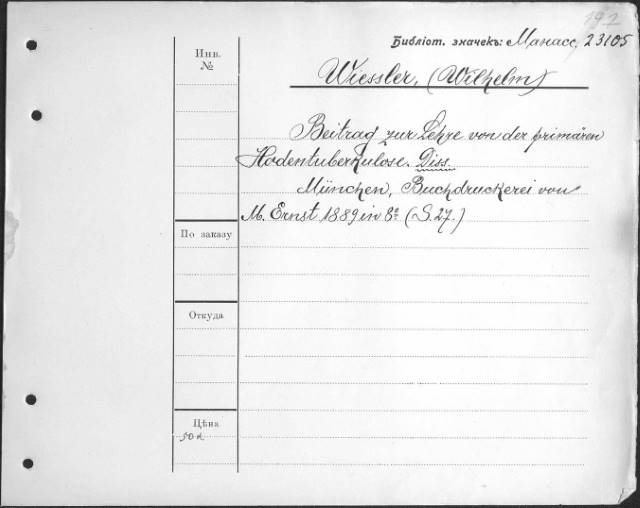 192
Библіот. значекъ: Манасс, 23105
Инв.
№
Wiessler, (Wilhelm)
Beitrag zur Lehre von der primären
Hodentuberkulose. Diss.
München, Buchdruckerei von
M. Ernst 1889 in 8º (S. 27.)
По заказу
Откуда
Цѣна
50 к